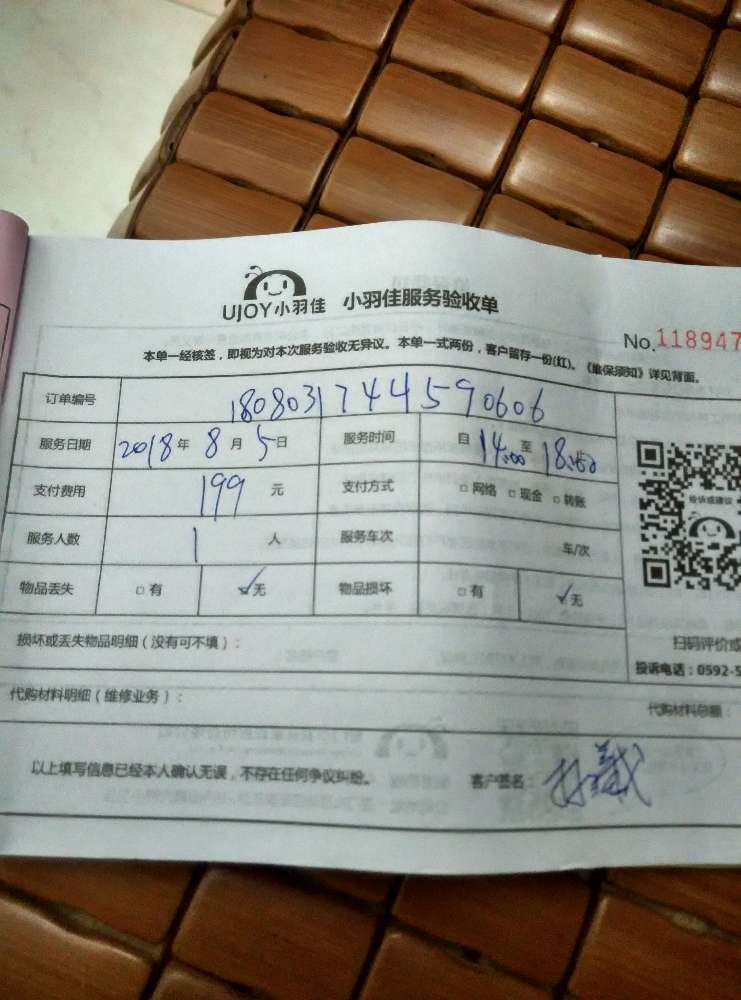 UJOY小羽佳 小羽佳服务验收单
No.118947
本单一经核签，即视为对本次服务验收无异议。本单一式两份，客户留存一份(红)。《维保须知》详见背面。
订单编号 180803174459 0606
服务日期 2018年 8月 5日 服务时间 自 14:00 至 18:00
支付费用 199 元 支付方式 □网络 □现金 □转账
服务人数 1 人 服务车次 车/次
投诉或建议
物品丢失 □有 ☑无 物品损坏 □有 ☑无
损坏或丢失物品明细（没有可不填）：
扫码评价或
投诉电话：0592-5
代购材料明细（维修业务）：
代购材料总额：
以上填写信息已经本人确认无误，不存在任何争议纠纷。 客户签名：